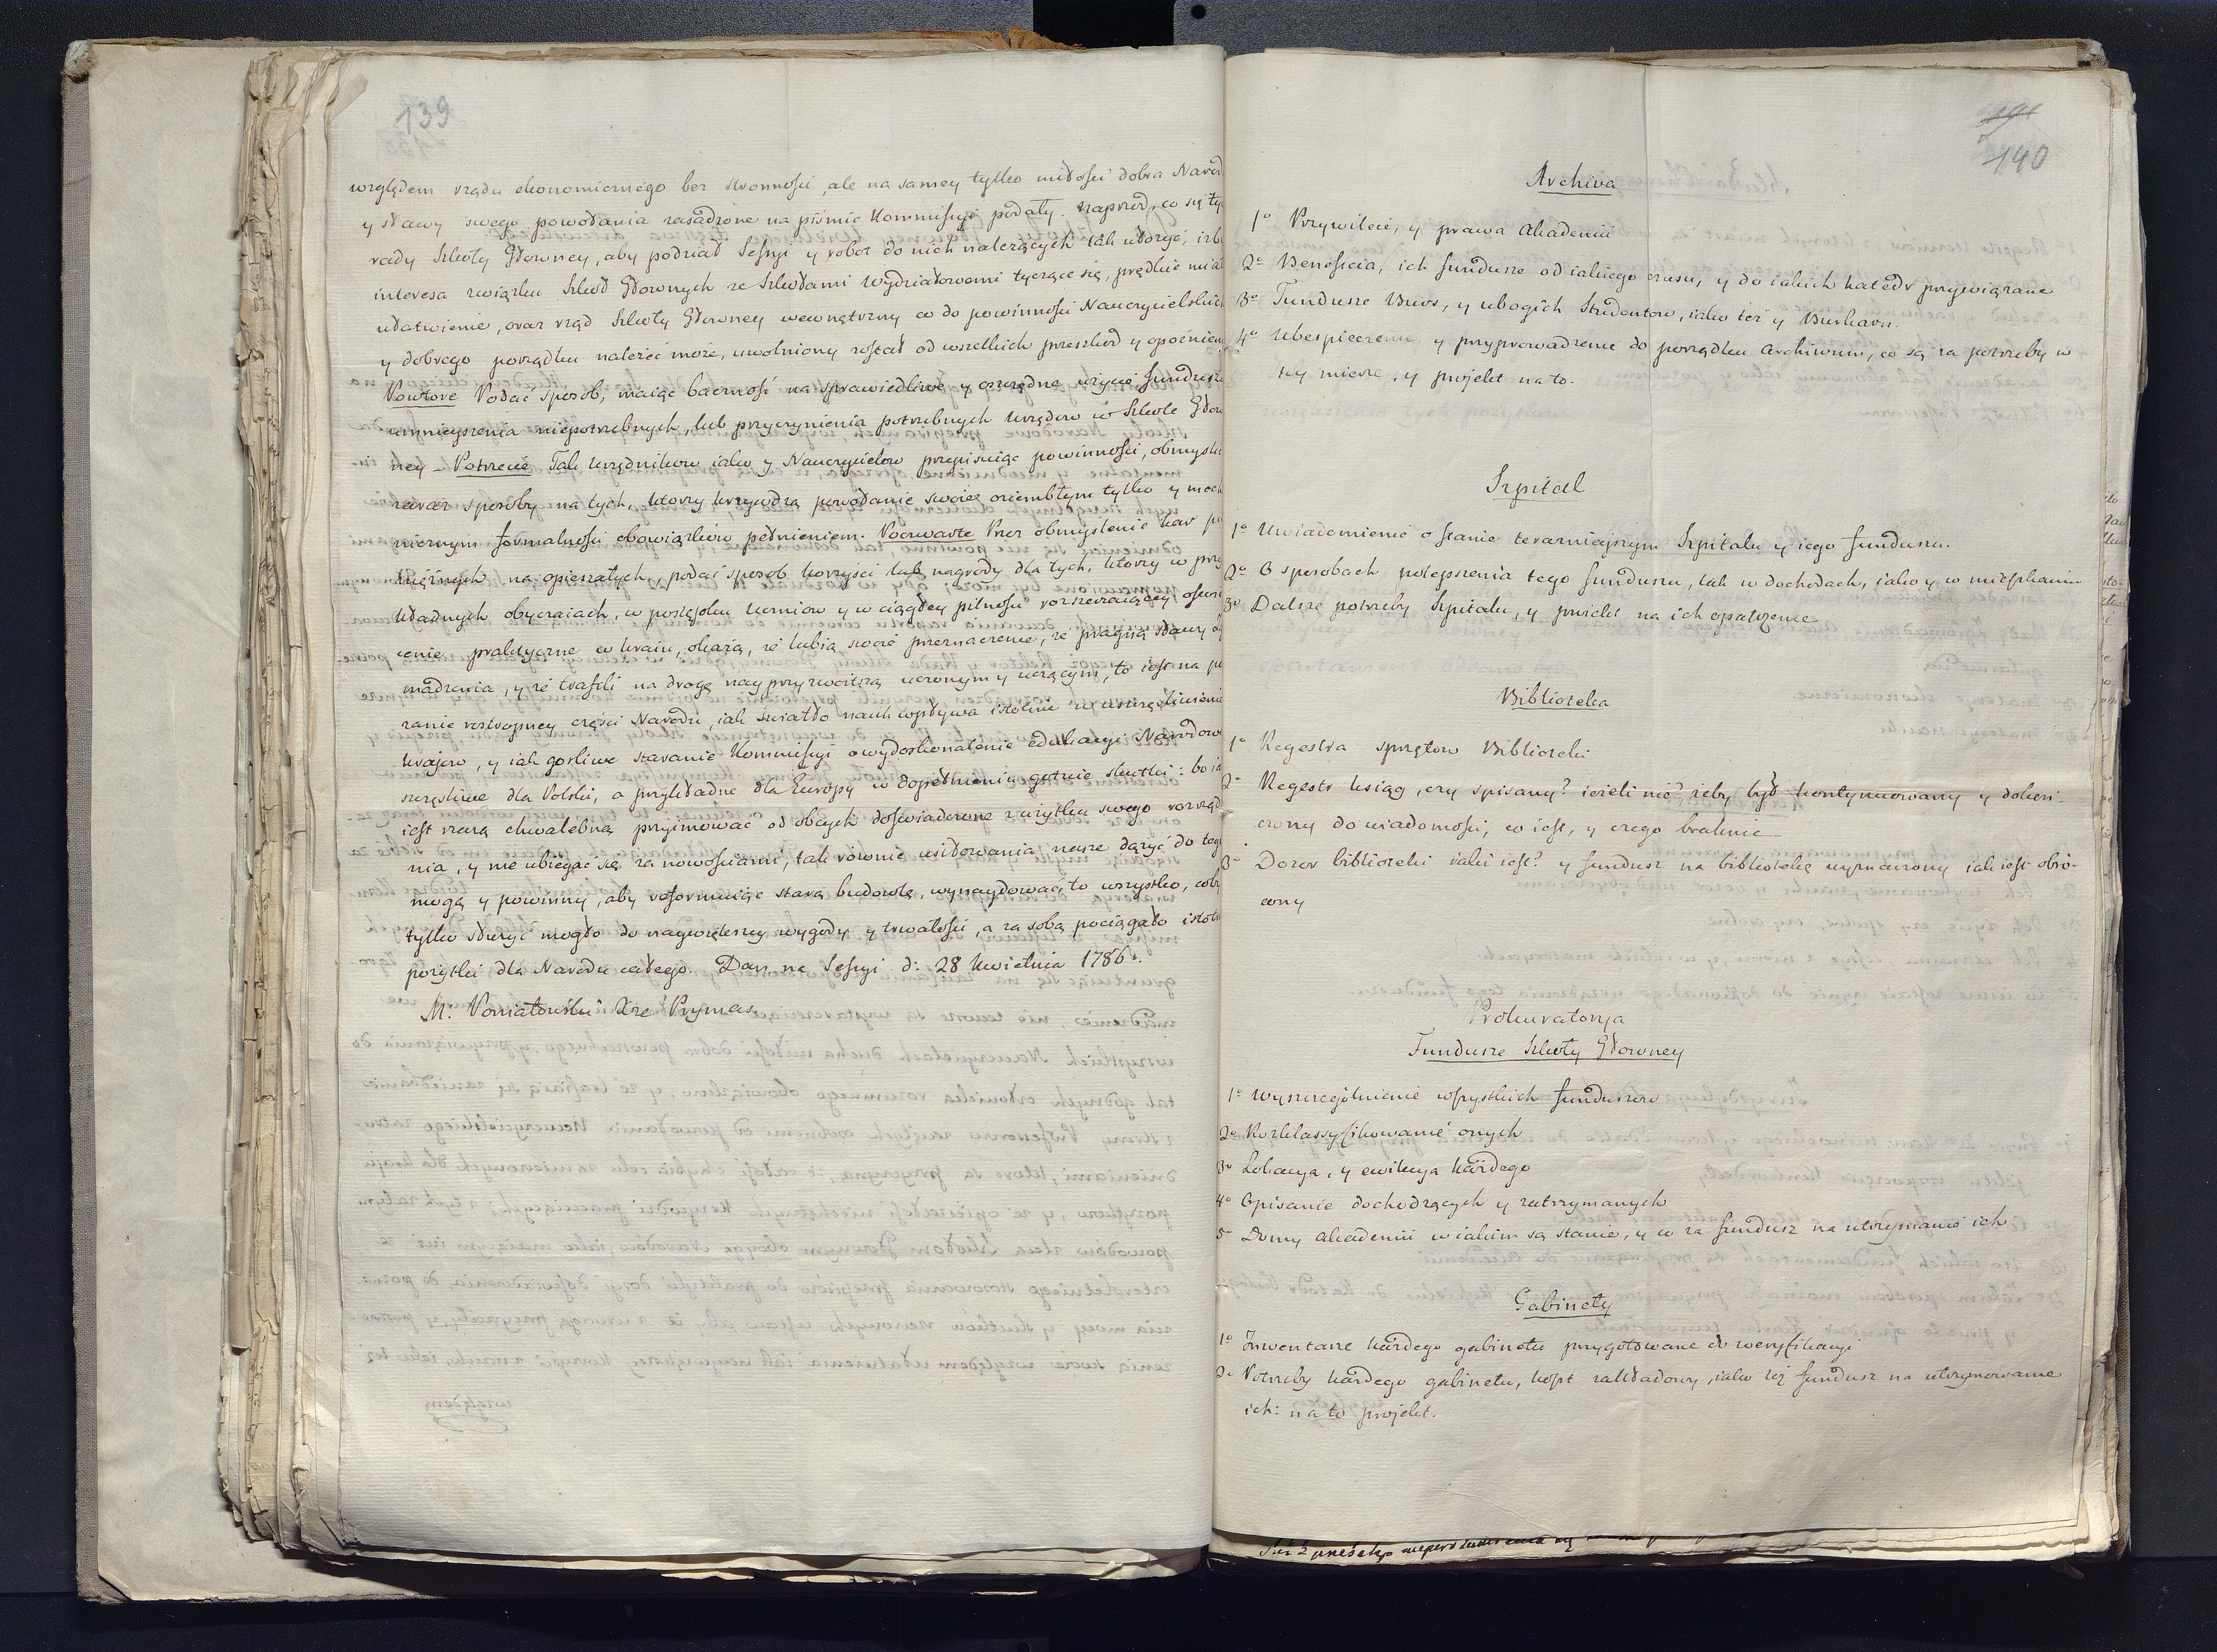 139
względem rządu ekonomicznego bez stronności, ale na samey tylko miłości dobra Narod
y sławy swego powołania zasadzone na piśmie Kommissyi podały. Naprzod, co się ty
rady Szkoły Głowney, aby podział Sessyi y robot do nich należących tak ułożyć, izb
interesa związku Szkoł Głownych ze Szkołami Wydziałowemi tyczące się, prędkie miał
ułatwienie, oraz rząd Szkoły Głowney wewnętrzny co do powinności Nauczycielskich
y dobrego porządku należeć może, uwolniony został od wszelkich przeszkod y opoźnien
Powtore Podać sposob, maiąc baczność na sprawiedliwe y oszczędne użycie fundusz
umnieyszenia niepotrzebnych, lub przyczynienia potrzebnych Urzędow w Szkole Głow
ney – Potrzecie Tak Urzędnikow iako y Nauczycielow przepisuiąc powinności, obmyslić
zaraz sposoby na tych, ktorzy krzywdzą powołanie swoie oziembłym tylko y mech
nicznym formalności obowiązkow pełnieniem. Poczwarte Przez obmyslenie kar
na opieszałych, podać sposob korzyści lub nagrody dla tych, ktorzy w przy
kładnych obyczaiach, w postępku Uczniow y w ciągłey pilności rozszerzaiącey oswie
cenie praktyczne w kraiu, okażą, że lubią swoie przeznaczenie, że pragną sławy Z
madzenia, y że trafili na drogę nayprzyzwoitszą uczonym y uczącym, to iest na
zanie roztropney części Narodu, iak swiatło nauk wpływa istotnie w uszczęśliwienie
kraiow, y iak gorliwe staranie Kommissyi o wydoskonalenie edukacyi Narodow
szczęśliwe dla Polski, a przykładne dla Europy w dopełnieniu gotuie skutki: bo ia
iest rzeczą chwalebną przyimować od obcych doświadczone z użytku swego rozrząd
nia, y nie ubiegać się za nowościami, tak rownie usiłowania nasze dążyć do teg
mogą y powinny, aby reformuiąc starą budowlę, wynaydować to wszystko, coby
tylko służyć mogło do naywiększey wygody y trwałości, a za sobą pociągało istotn
pożytki dla Narodu całego. Dan na Sessyi d: 28 Kwietnia 1786 r.
M: Poniatowski Xże Prymas
względem
140
Archiva
1o Przywileie, y prawa Akademii
2o Beneficia, ich fundusze od iakiego czasu, y do iakich katedr przywiązane
3o Fundusze Burs, y ubogich Studentow, iako też y Burkarn.
4o Ubespieczenie y przyprowadzenie do porządku Archiwum, co są za potrzeby w
tey mierze, y projekt na to.
Szpital
1o Uwiadomienie o stanie teraznieyszym Szpitalu y iego funduszu.
2o O sposobach polepszenia tego funduszu, tak w dochodach, iako y w mieszkaniu
3o Dalsze potrzeby Szpitalu, y proiekt na ich opatrzenie
Biblioteka
1o Regestra sprzętow Biblioteki
2o Regestr ksiąg, czy spisany? ieżeli nie? żeby był kontynuowany y dokoń-
czony do wiadomości, co iest, y czego braknie
3o Dozor biblioteki iaki iest? y fundusz na bibliotekę wyznaczony iak iest obro-
cony
Prokuratorya
Fundusze Szkoły Głowney
1o Wyszczegolnienie wszystkich funduszow
2o Rozklassyfikowanie onych
3o Lokacya, y ewikcya każdego
4o Opisanie dochodzących y zatrzymanych
5o Domy Akademii w iakim są stanie, y co za fundusz na utrzymanie ich
Gabinety
1o Inwentarze każdego gabinetu przygotowane do weryfikacyi
2o Potrzeby każdego gabinetu, koszt zakładowy, iako też fundusz na utrzymowanie
ich: na to projekt.